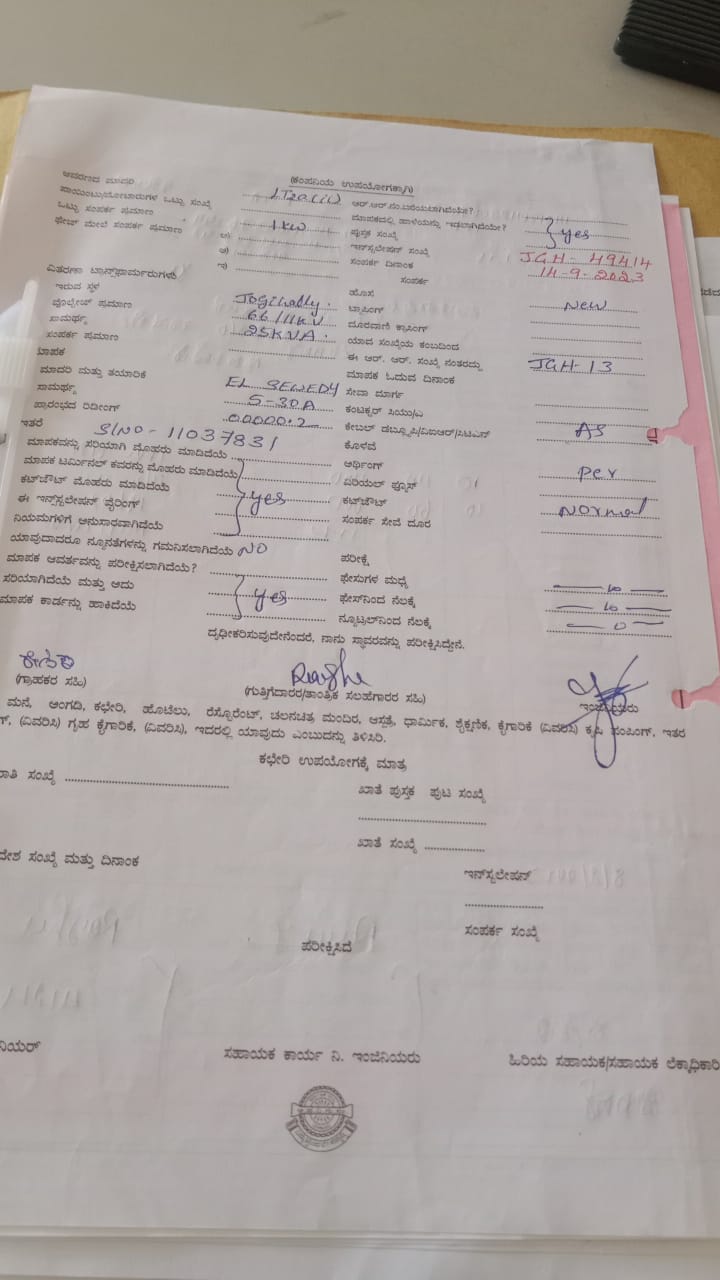 (ಕಂಪನಿಯ ಉಪಯೋಗಕ್ಕಾಗಿ)
ಆವರಣದ ಮಾದರಿ
ಪಾಯಿಂಟು/ಮೋಟಾರುಗಳ ಒಟ್ಟು ಸಂಖ್ಯೆ ಆರ್.ಆರ್.ನಂ.ಬರೆಯಲಾಗಿದೆಯೇ?
ಒಟ್ಟು ಸಂಪರ್ಕ ಪ್ರಮಾಣ 1KW ಮಾಪಕದಲ್ಲಿ ಹಾಳೆಯನ್ನು ಇಡಲಾಗಿದೆಯೇ? yes
ಫೇಜ್ ಮೇಲೆ ಸಂಪರ್ಕ ಪ್ರಮಾಣ ಪುಸ್ತಕ ಸಂಖ್ಯೆ
ಇನ್‌ಸ್ಟಲೇಷನ್ ಸಂಖ್ಯೆ JGH-49414
ಸಂಪರ್ಕ ದಿನಾಂಕ 14-9-2023
ಸಂಪರ್ಕ
ವಿತರಣಾ ಟ್ರಾನ್ಸ್‌ಫಾರ್ಮರುಗಳು
ಇರುವ ಸ್ಥಳ Jogihally. ಹೊಸ New
ವೋಲ್ಟೇಜ್ ಪ್ರಮಾಣ 66/11KV ಟ್ಯಾಪಿಂಗ್
ಸಾಮರ್ಥ್ಯ 25KVA. ದೂರವಾಣಿ ಕ್ರಾಸಿಂಗ್
ಸಂಪರ್ಕ ಪ್ರಮಾಣ ಯಾವ ಸಂಖ್ಯೆಯ ಕಂಬದಿಂದ
ಮಾಪಕ ಈ ಆರ್. ಆರ್. ಸಂಖ್ಯೆ ನಂತರದ್ದು JGH-13
ಮಾದರಿ ಮತ್ತು ತಯಾರಿಕೆ EL SEWEDY ಮಾಪಕ ಓದುವ ದಿನಾಂಕ
ಸಾಮರ್ಥ್ಯ 5-30A ಸೇವಾ ಮಾರ್ಗ
ಪ್ರಾರಂಭದ ರಿಡೀಂಗ್ 00000.2 ಕಂಟಕ್ಟರ್ ಸಿಯು/ಎ
ಇತರೆ S/NO-11037831 ಕೇಬಲ್ ಡಬ್ಲ್ಯೂಪಿ/ವಿಐಆರ್/ಸಿಟಿಎಸ್ AS
ಮಾಪಕವನ್ನು ಸರಿಯಾಗಿ ಮೊಹರು ಮಾಡಿದೆಯೆ ಕೊಳವೆ
ಮಾಪಕ ಟರ್ಮಿನಲ್ ಕವರನ್ನು ಮೊಹರು ಮಾಡಿದೆಯೆ ಅರ್ಥಿಂಗ್ per
ಕಟ್‌ಔಟ್ ಮೊಹರು ಮಾಡಿದೆಯೆ yes ಏರಿಯಲ್ ಫ್ಯೂಸ್
ಈ ಇನ್‌ಸ್ಟಲೇಷನ್ ವೈರಿಂಗ್ ಕಟ್‌ಔಟ್ Normal
ನಿಯಮಗಳಿಗೆ ಅನುಸಾರವಾಗಿದೆಯೆ ಸಂಪರ್ಕ ಸೇವೆ ದೂರ
ಯಾವುದಾದರೂ ನ್ಯೂನತೆಗಳನ್ನು ಗಮನಿಸಲಾಗಿದೆಯೆ NO
ಮಾಪಕ ಆವರ್ತವನ್ನು ಪರೀಕ್ಷಿಸಲಾಗಿದೆಯೆ? ಪರೀಕ್ಷೆ
ಸರಿಯಾಗಿದೆಯೆ ಮತ್ತು ಅದು yes ಫೇಸುಗಳ ಮಧ್ಯೆ
ಮಾಪಕ ಕಾರ್ಡನ್ನು ಹಾಕಿದೆಯೆ ಫೇಸ್‌ನಿಂದ ನೆಲಕ್ಕೆ
ನ್ಯೂಟ್ರಲ್‌ನಿಂದ ನೆಲಕ್ಕೆ
ದೃಢೀಕರಿಸುವುದೇನೆಂದರೆ, ನಾನು ಸ್ಥಾವರವನ್ನು ಪರೀಕ್ಷಿಸಿದ್ದೇನೆ.
(ಗ್ರಾಹಕರ ಸಹಿ) (ಗುತ್ತಿಗೆದಾರರ/ತಾಂತ್ರಿಕ ಸಲಹೆಗಾರರ ಸಹಿ) ಇಂಜಿನಿಯರು
ಮನೆ, ಅಂಗಡಿ, ಕಛೇರಿ, ಹೊಟೆಲು, ರೆಸ್ಟೋರೆಂಟ್, ಚಲನಚಿತ್ರ ಮಂದಿರ, ಆಸ್ಪತ್ರೆ, ಧಾರ್ಮಿಕ, ಶೈಕ್ಷಣಿಕ, ಕೈಗಾರಿಕೆ (ವಿವರಿಸಿ) ಕೃಷಿ ಪಂಪಿಂಗ್, ಇತರ
(ವಿವರಿಸಿ) ಗೃಹ ಕೈಗಾರಿಕೆ, (ವಿವರಿಸಿ), ಇದರಲ್ಲಿ ಯಾವುದು ಎಂಬುದನ್ನು ತಿಳಿಸಿರಿ.
ಕಛೇರಿ ಉಪಯೋಗಕ್ಕೆ ಮಾತ್ರ
ಸಂಖ್ಯೆ ಖಾತೆ ಪುಸ್ತಕ ಪುಟ ಸಂಖ್ಯೆ
ಖಾತೆ ಸಂಖ್ಯೆ
ಸಂಖ್ಯೆ ಮತ್ತು ದಿನಾಂಕ ಇನ್‌ಸ್ಟಲೇಷನ್
ಸಂಪರ್ಕ ಸಂಖ್ಯೆ
ಪರೀಕ್ಷಿಸಿದೆ
ನಿಯರ್ ಸಹಾಯಕ ಕಾರ್ಯ ನಿ. ಇಂಜಿನಿಯರು ಹಿರಿಯ ಸಹಾಯಕ/ಸಹಾಯಕ ಲೆಕ್ಕಾಧಿಕಾರಿ